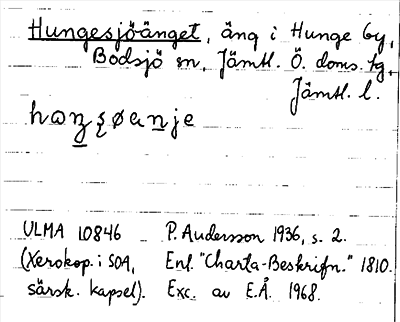 Hungesjöänget, äng i Hunge by,
Bodsjö sn, Jämtl. Ö. doms. tg,
Jämtl. l.
ULMA 10846 P. Andersson 1936, s. 2.
(Xerokop. i SOA, Enl. "Charta-Beskrifn." 1810.
särsk. kapsel). Exc. av E.Å. 1968.